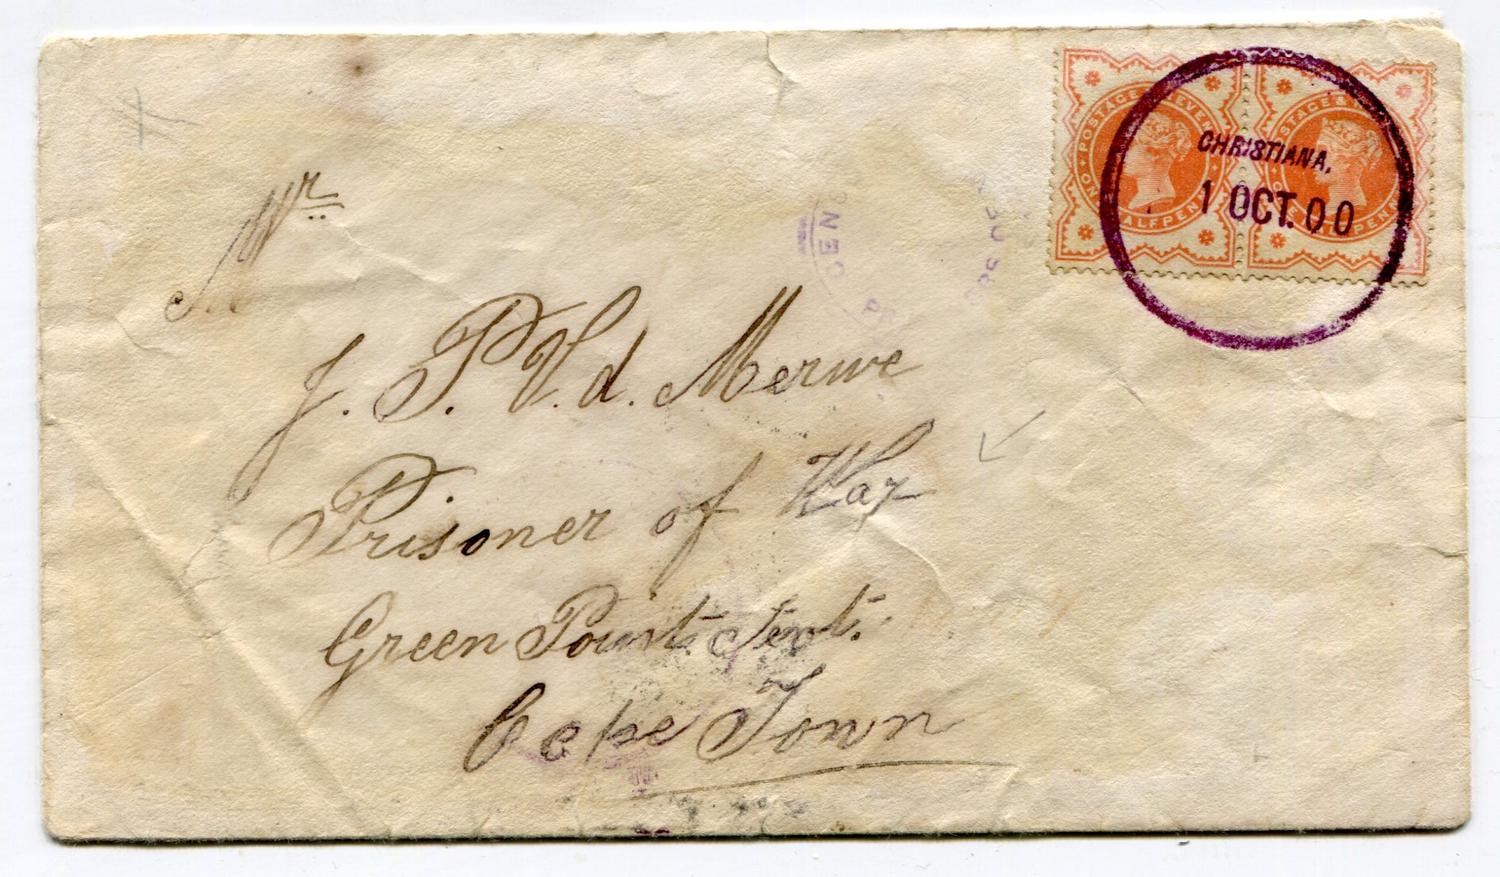 POSTAGE & REVENUE
HALFPENNY
POSTAGE &
CHRISTIANA,
1 OCT. 00
Mr
J. P. V. d. Merwe
Prisoner of War
Green Point Tent.
Cape Town